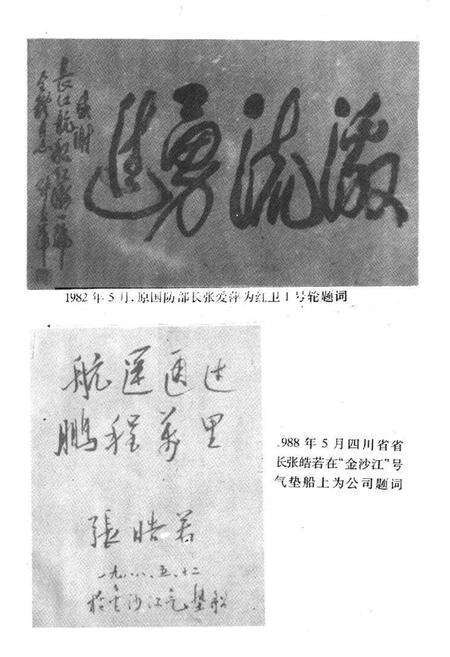 激流勇进
感谢
长江航船红卫一号
全体同志
张爱萍
1982年5月,原国防部长张爱萍为红卫1号轮题词
航运通达
鹏程萬里
張皓若
一九八八、五、十二
於金沙江气垫船
1988年5月四川省省
长张皓若在“金沙江”号
气垫船上为公司题词